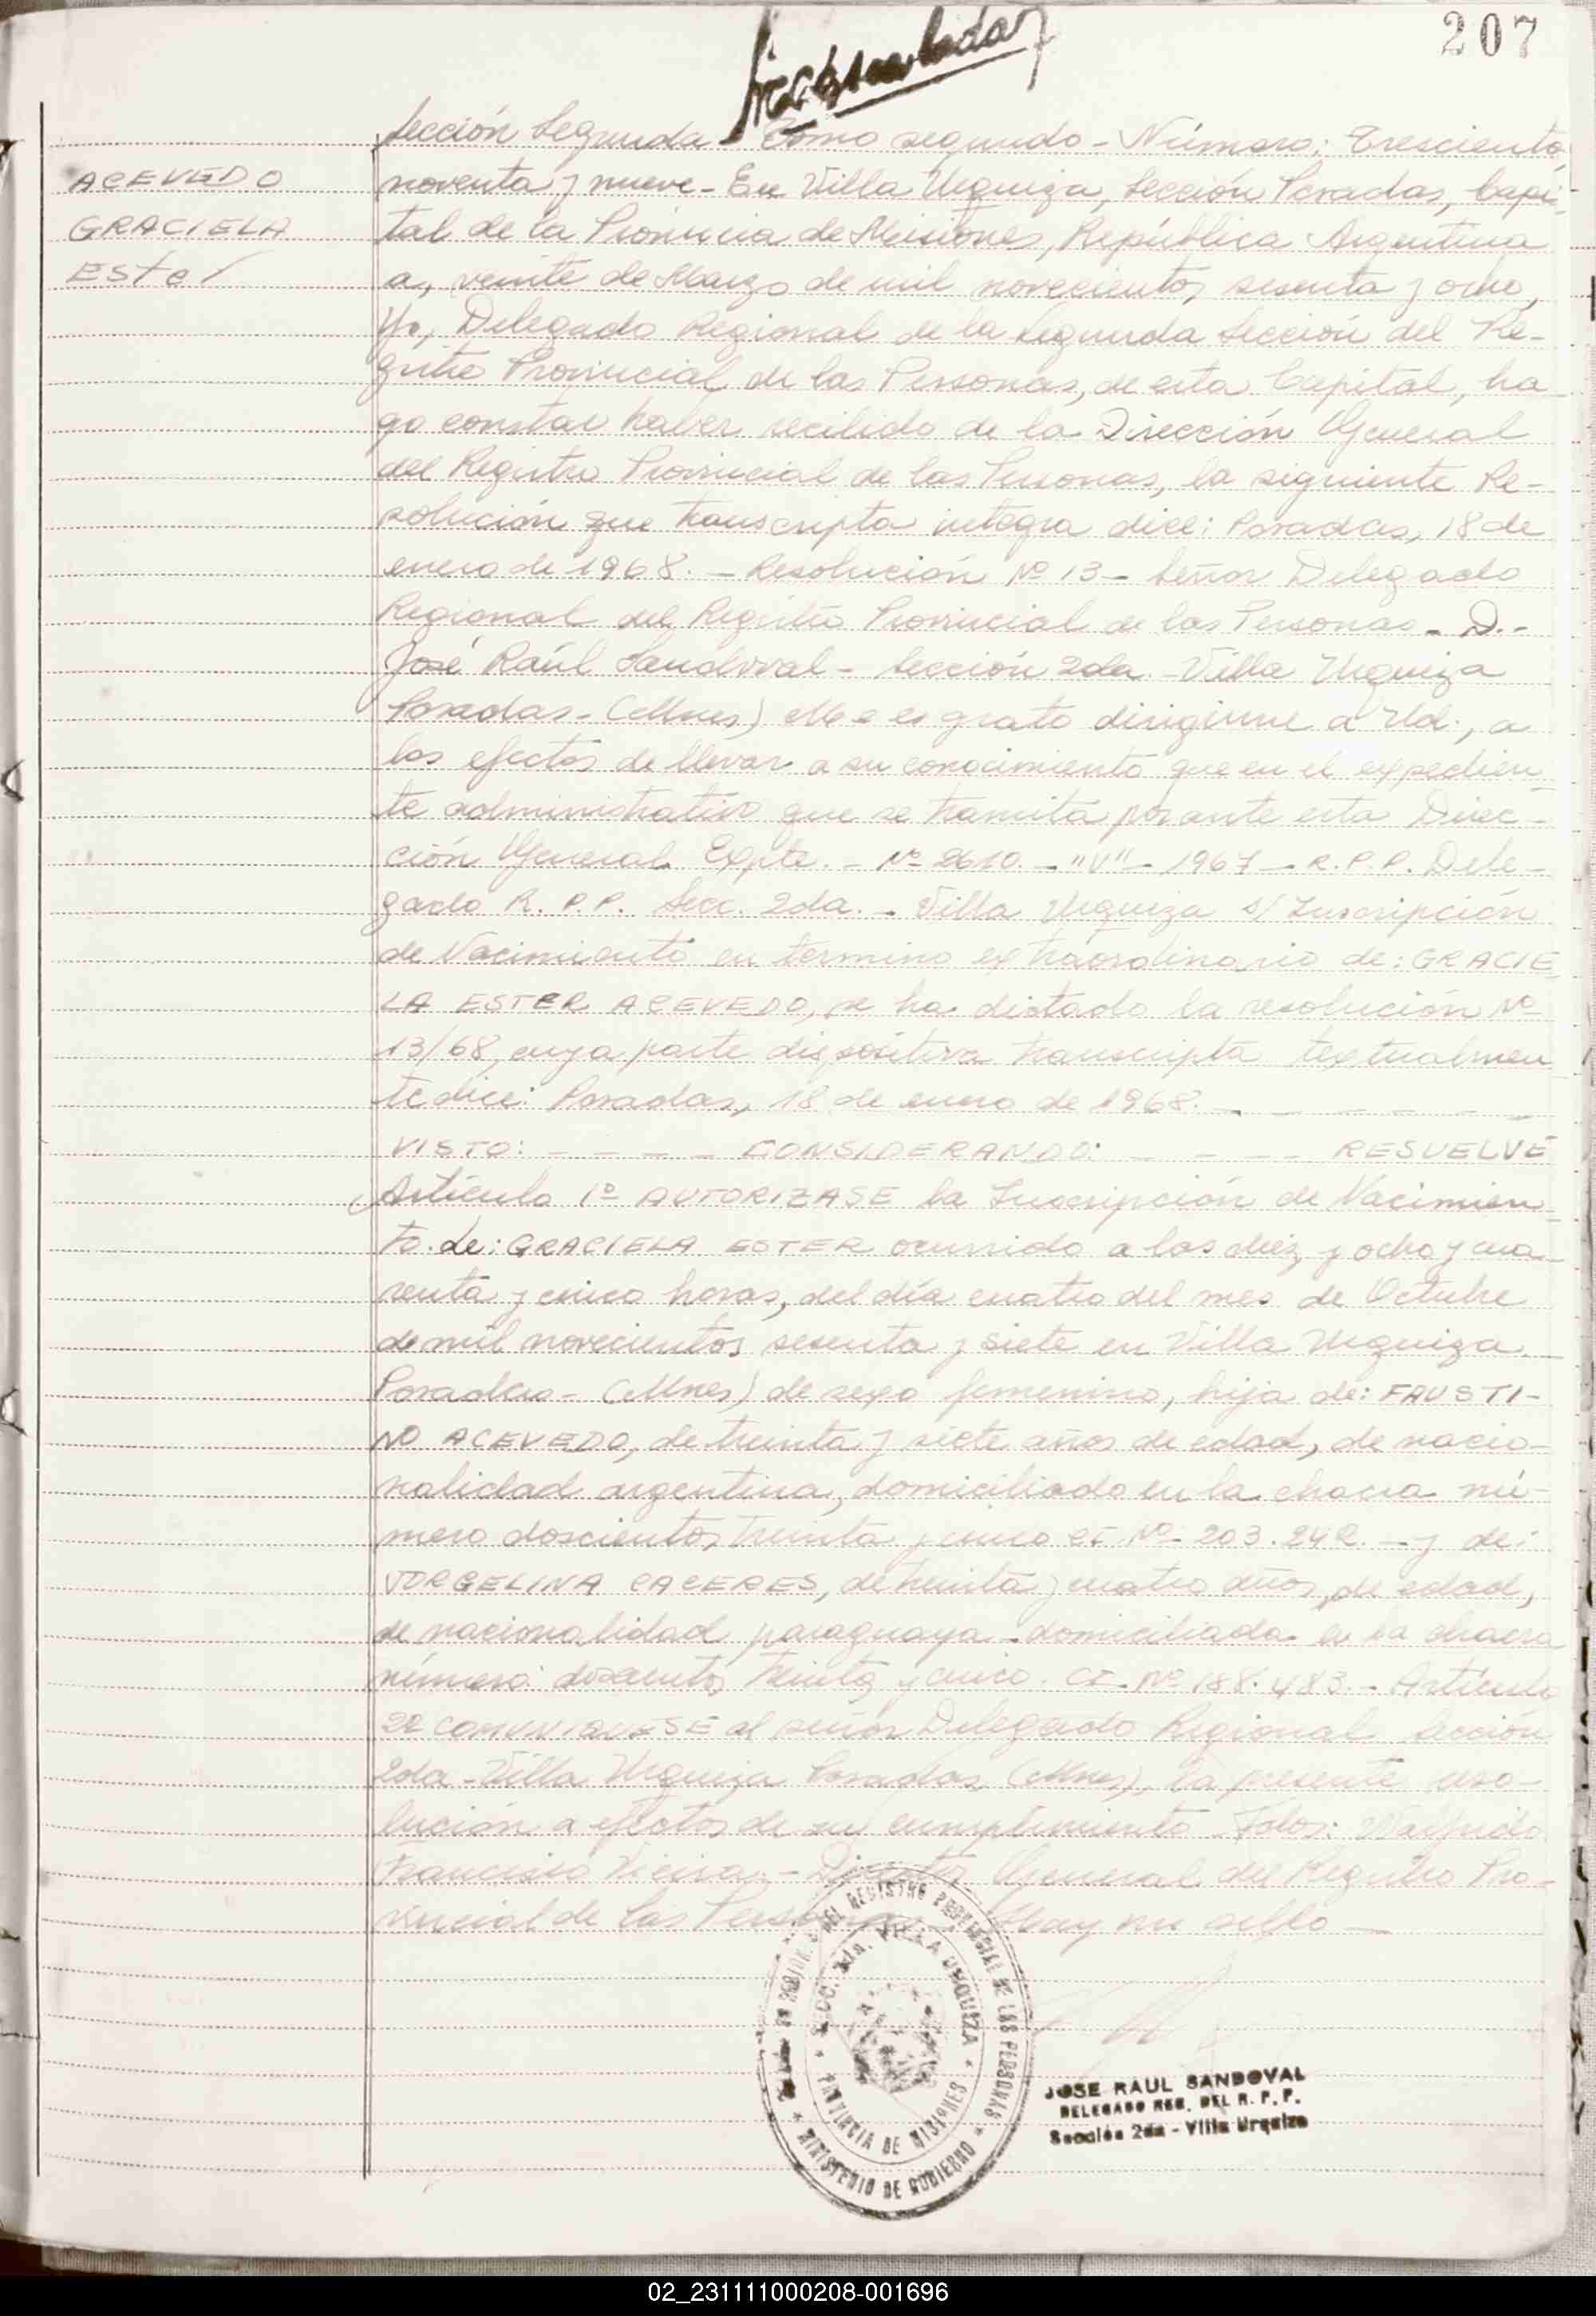 207
Sección Segunda - Tomo segundo - Número: Trescientos
ACEVEDO
noventa y nueve - En Villa Urquiza, Sección Posadas, Capi-
GRACIELA
tal de la Provincia de Misiones, República Argentina
Ester
a, veinte de Marzo de mil novecientos sesenta y ocho,
Yo, Delegado Regional de la Segunda Sección del Re-
gistro Provincial de las Personas, de esta Capital, ha-
go constar haber recibido de la Dirección General
del Registro Provincial de las Personas, la siguiente Re-
solución que transcripta integra dice: Posadas, 18 de
enero de 1968. - Resolución Nº 13 - Señor Delegado
Regional del Registro Provincial de las Personas - D.-
José Raúl Sandoval - Sección 2da. - Villa Urquiza
Posadas - (Mnes) Me es grato dirigirme a Ud., a
los efectos de llevar a su conocimiento que en el expedien-
te administrativo que se tramita por ante esta Direc-
ción General Expte. - Nº 2610. - "V" - 1967 - R.P.P. Dele-
gado R.P.P. Secc. 2da. - Villa Urquiza s/ Inscripción
de Nacimiento en termino extraordinario de: GRACIE
LA ESTER ACEVEDO, se ha dictado la resolución Nº
13/68, cuya parte dispositiva transcripta textualmen
te dice: Posadas, 18 de enero de 1968. - - - - - -
VISTO: - - - - CONSIDERANDO: - - - - RESUELVE
Artículo 1º AUTORIZASE la Inscripción de Nacimien-
to. de: GRACIELA ESTER ocurrido a las diez y ocho y cua-
renta y cinco horas, del día cuatro del mes de Octubre
de mil novecientos sesenta y siete en Villa Urquiza.
Posadas - (Mnes) de sexo femenino, hija de: FAUSTI-
NO ACEVEDO, de treinta y siete años de edad, de nacio-
nalidad argentina, domiciliado en la chacra nú-
mero doscientos treinta y cinco CI Nº 203.242. - y de:
JORGELINA CACERES, de treinta y cuatro años, de edad,
de nacionalidad paraguaya - domiciliada en la chacra
número doscientos treinta y cinco. CI. Nº 188.483. - Artículo
2º COMUNIQUESE al señor Delegado Regional Sección
2da - Villa Urquiza Posadas (Mnes), la presente reso-
lución a efectos de su cumplimiento Fdos:
Francisco Vieira - Director General del Registro Pro-
vincial de las Personas Hay un sello -
REGISTRO PROVINCIAL DE LAS PERSONAS
SECC. 2da. VILLA URQUIZA
PROVINCIA DE MISIONES
MINISTERIO DE GOBIERNO
JOSE RAUL SANDOVAL
DELEGADO REG. DEL R. P. P.
Sección 2da - Villa Urquiza
02_231111000208-001696